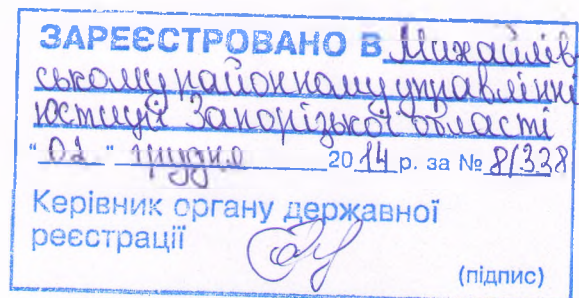 ЗАРЕЄСТРОВАНО В Михайлів-
ському районному управлінні
юстиції Запорізької області
"02" грудня 2014 р. за № 8/338
Керівник органу державної
реєстрації
(підпис)